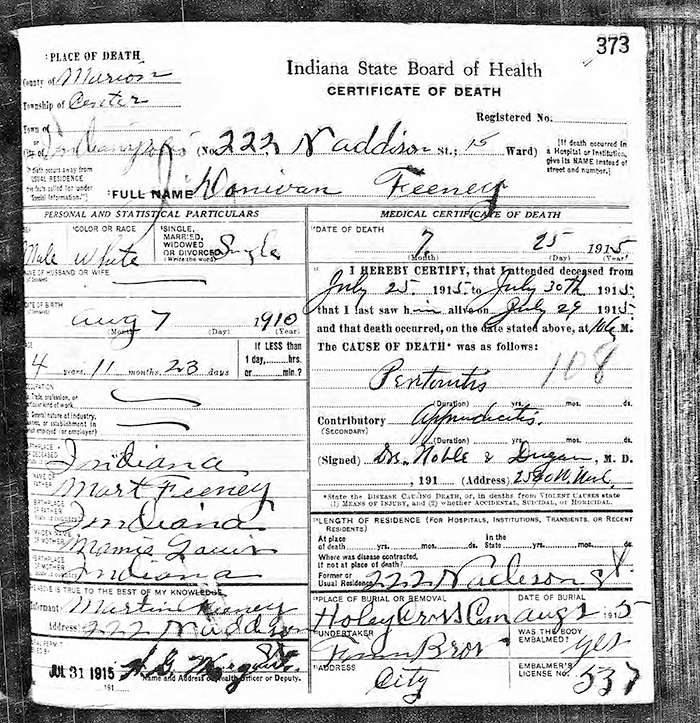 373
PLACE OF DEATH
County of Marion
Township of Center
Town of
or
City of Indianapolis (No. 222 N Addison St.; 15 Ward)
Indiana State Board of Health
CERTIFICATE OF DEATH
Registered No.
[If death occurred in
a Hospital or Institution,
give its NAME instead of
street and number.]
If death occurs away from
USUAL RESIDENCE
give facts called for under
"Special Information."
FULL NAME Donivan Feeney
PERSONAL AND STATISTICAL PARTICULARS
COLOR OR RACE
SINGLE,
MARRIED,
WIDOWED
OR DIVORCED
(Write the word)
Male White Single
NAME OF HUSBAND OR WIFE
DATE OF BIRTH
Aug 7 1910
(Month) (Day) (Year)
If LESS than
1 day,....hrs.
or ....min.?
4 years, 11 months, 23 days
OCCUPATION
(a) Trade, profession, or
particular kind of work
(b) General nature of industry,
business, or establishment in
which employed (or employer)
BIRTHPLACE
OF DECEASED
Indiana
NAME OF
Mart Feeney
BIRTHPLACE
OF FATHER
Indiana
MAIDEN NAME
OF MOTHER
Mamie
BIRTHPLACE
OF MOTHER
Indiana
THE ABOVE IS TRUE TO THE BEST OF MY KNOWLEDGE
Informant Martin Feeney
Address 222 N Addison St
JUL 31 1915
191
Name and Address of Health Officer or Deputy.
MEDICAL CERTIFICATE OF DEATH
DATE OF DEATH
7 25 1915
(Month) (Day) (Year)
I HEREBY CERTIFY, that I attended deceased from
July 25 1915 to July 30th 1915
that I last saw him alive on July 29 1915
and that death occurred, on the date stated above, at M.
The CAUSE OF DEATH* was as follows:
Peritonitis 108
(Duration) yrs. mos. ds.
Contributory Appendicitis.
(SECONDARY)
(Duration) yrs. mos. ds.
(Signed) Drs. Noble & Dugan, M. D.
, 191 (Address) 2540 W.
*State the DISEASE CAUSING DEATH, or, in deaths from VIOLENT CAUSES state
(1) MEANS OF INJURY, and (2) whether ACCIDENTAL, SUICIDAL, or HOMICIDAL.
LENGTH OF RESIDENCE (FOR HOSPITALS, INSTITUTIONS, TRANSIENTS, OR RECENT
RESIDENTS)
At place
of death yrs. mos. ds.
In the
State yrs. mos. ds.
Where was disease contracted,
if not at place of death?
Former or
Usual Residence 222 N St.
PLACE OF BURIAL OR REMOVAL
Holey Cross Cem
DATE OF BURIAL
Aug 1 1915
UNDERTAKER
Bros
WAS THE BODY
EMBALMED?
yes
ADDRESS
City
EMBALMER'S
LICENSE NO. 537